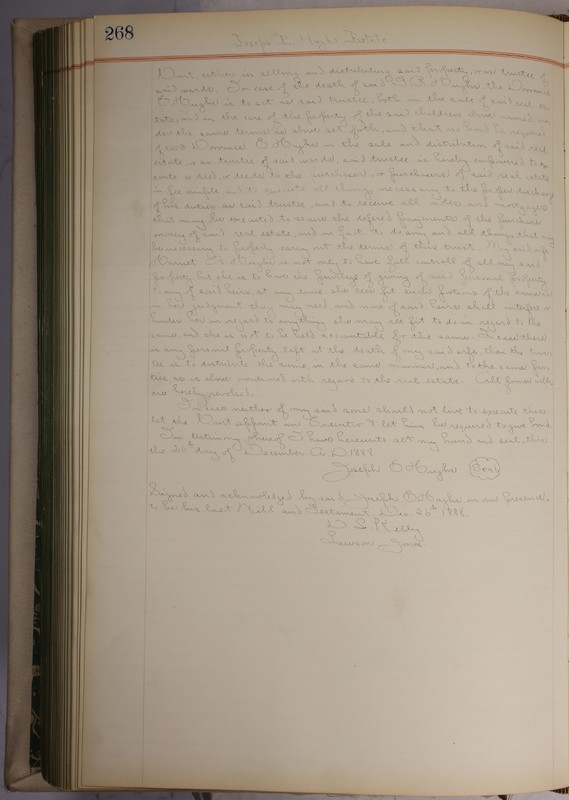 268
Joseph O. Hughs Estate
Want, either in selling and distributing said property, or as trustee of
said wards. In case of the death of said Hughs the
O Hughs is to act as said trustee, both in the sale of said real es
tate, and in the care of the property of the said children above named un
der the same terms as above set forth, and that no bond be required
of said O Hughs in the sale and distribution of said real
estate or as trustee of said wards, said trustee is hereby empowered to ex
ecute a deed, or deeds to the purchaser, or purchasers of said real estate
in fee simple, and to execute all things necessary to the proper discharge
of his duties as said trustee, and to receive all and mortgages
that may be executed to secure the defered payments of the purchase
money of said real estate, and in fact to do any and all things that may
be necessary to properly carry out the terms of this trust. My said wife
Hughs is not only to have full controll of all my said
property, but she is to have the privilege of giving of said personal property
to any of said heirs, at any time she sees fit such portions of the same as
in her judgment they may need and none of said heirs shall interfere or
hinder her in regard to anything she may see fit to do in regard to the
same, and she is not to be held accountible for the same. In case there
is any personal property left at the death of my said wife, then the trus
tee is to distribute the same in the same manner, and to the same par
ties, as is above mentioned with regard to the real estate. All former wills
are hereby revoked.
In case neither of my said sons should not live to execute this
let the Court appoint an Executor & let him be required to give bond.
In testimony whereof I have hereunto set my hand and seal, this
the 26th day of December A.D. 1888
Joseph O Hughs Seal
Signed and acknowledged by said Joseph O Hughs in our presence,
to be his last Will and Testament, Dec 26th 1888.
Kelly
Lawson Jones